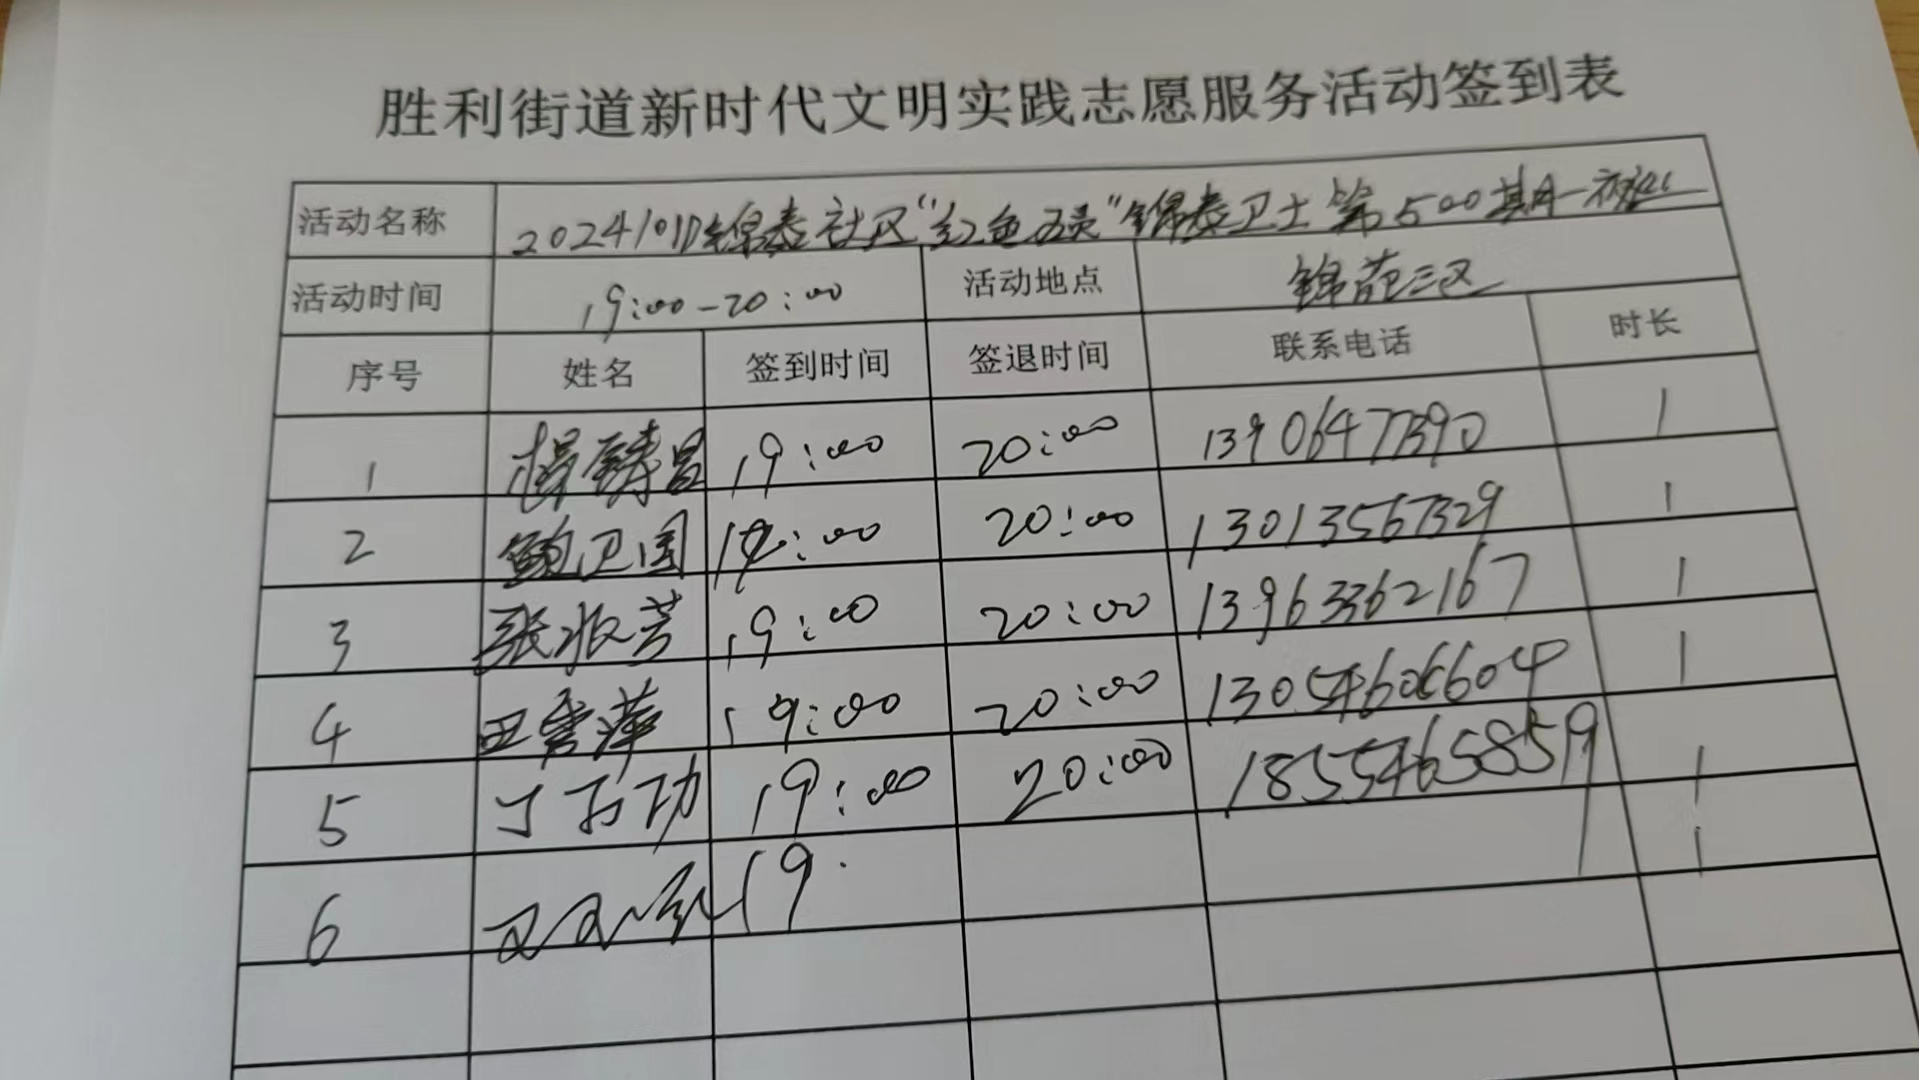 胜利街道新时代文明实践志愿服务活动签到表
活动名称 20241017锦泰社区"红色五员"锦泰卫士第500期
活动时间 19:00-20:00 活动地点 锦苑三区
序号 姓名 签到时间 签退时间 联系电话 时长
1 杨铸昌 19:00 20:00 13906477390 1
2 鲍卫国 19:00 20:00 13013567329 1
3 张淑芳 19:00 20:00 13963362167 1
4 田雪萍 19:00 20:00 13054606604 1
5 19:00 20:00 18554658591 1
6 19: 1